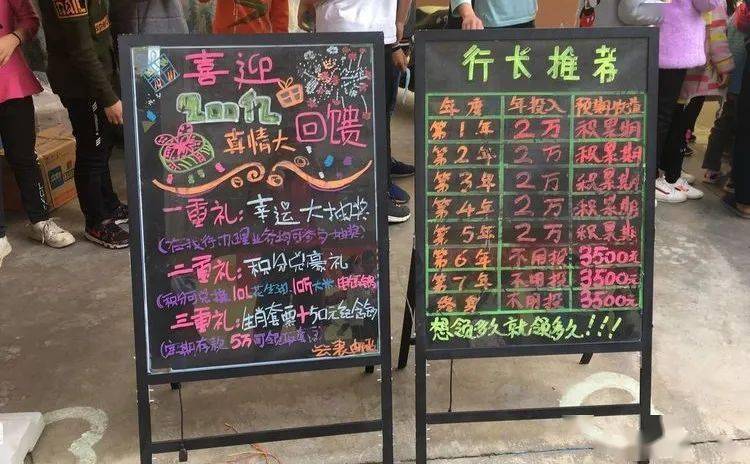 喜迎
200亿
真情大回馈
一重礼:幸运大抽奖
(在我行办理业务均可参与抽奖)
二重礼:积分兑豪礼
(积分可兑换10L花生油,10斤大米
三重礼:生肖套票+50元纪念钞
(定期存款5万可领
行长推荐
年度 年投入 预期收益
第1年 2万 积累期
第2年 2万 积累期
第3年 2万 积累期
第4年 2万 积累期
第5年 2万 积累期
第6年 不用投 3500元
第7年 不用投 3500元
终身 不用投 3500元
想领多久就领多久!!!